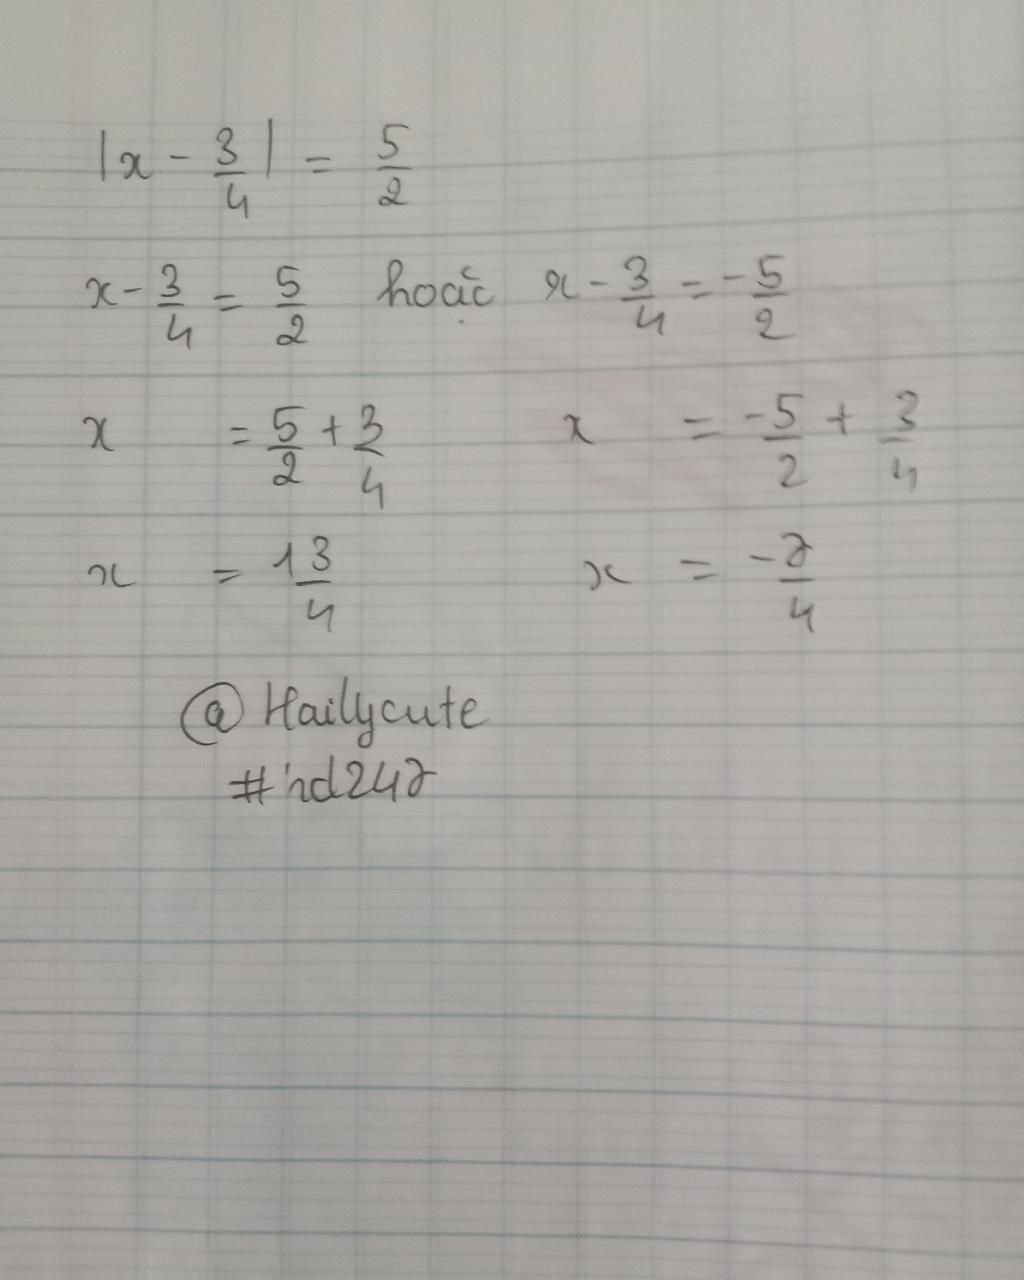 |x - 3/4| = 5/2
x - 3/4 = 5/2 hoặc x - 3/4 = -5/2
x = 5/2 + 3/4 x = -5/2 + 3/4
x = 13/4 x = -7/4
@Hailycute
#hd247